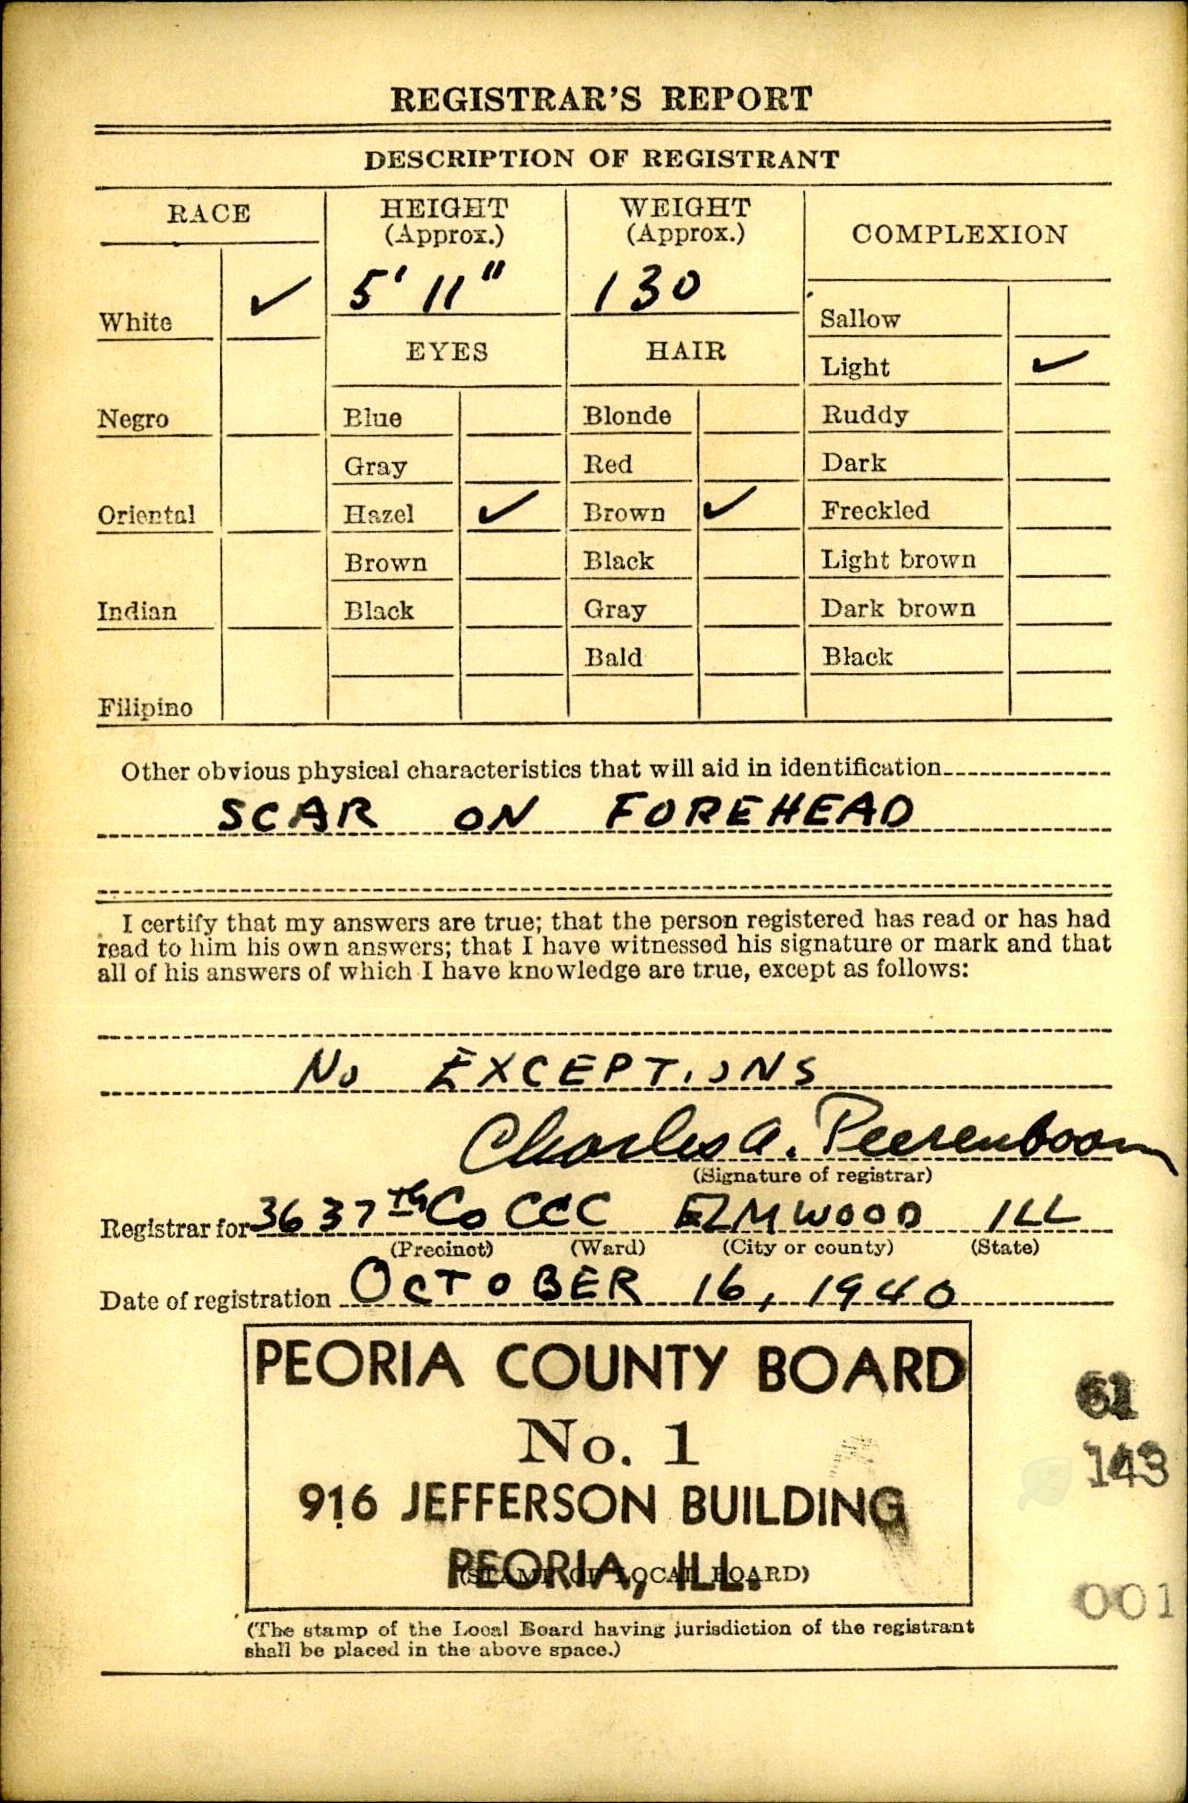 REGISTRAR'S REPORT
DESCRIPTION OF REGISTRANT
RACE
HEIGHT
(Approx.)
WEIGHT
(Approx.)
COMPLEXION
White ✓
5' 11"
130
Sallow
EYES
HAIR
Light ✓
Negro
Blue
Blonde
Ruddy
Gray
Red
Dark
Oriental
Hazel ✓
Brown ✓
Freckled
Brown
Black
Light brown
Indian
Black
Gray
Dark brown
Bald
Black
Filipino
Other obvious physical characteristics that will aid in identification
SCAR ON FOREHEAD
I certify that my answers are true; that the person registered has read or has had
read to him his own answers; that I have witnessed his signature or mark and that
all of his answers of which I have knowledge are true, except as follows:
NO EXCEPTIONS
Charles A. Peerenboom
(Signature of registrar)
Registrar for 3637th Co CCC ELMWOOD ILL
(Precinct) (Ward) (City or county) (State)
Date of registration OCTOBER 16, 1940
PEORIA COUNTY BOARD
No. 1
916 JEFFERSON BUILDING
PEORIA, ILL.
(STAMP OF LOCAL BOARD)
143
001
(The stamp of the Local Board having jurisdiction of the registrant
shall be placed in the above space.)